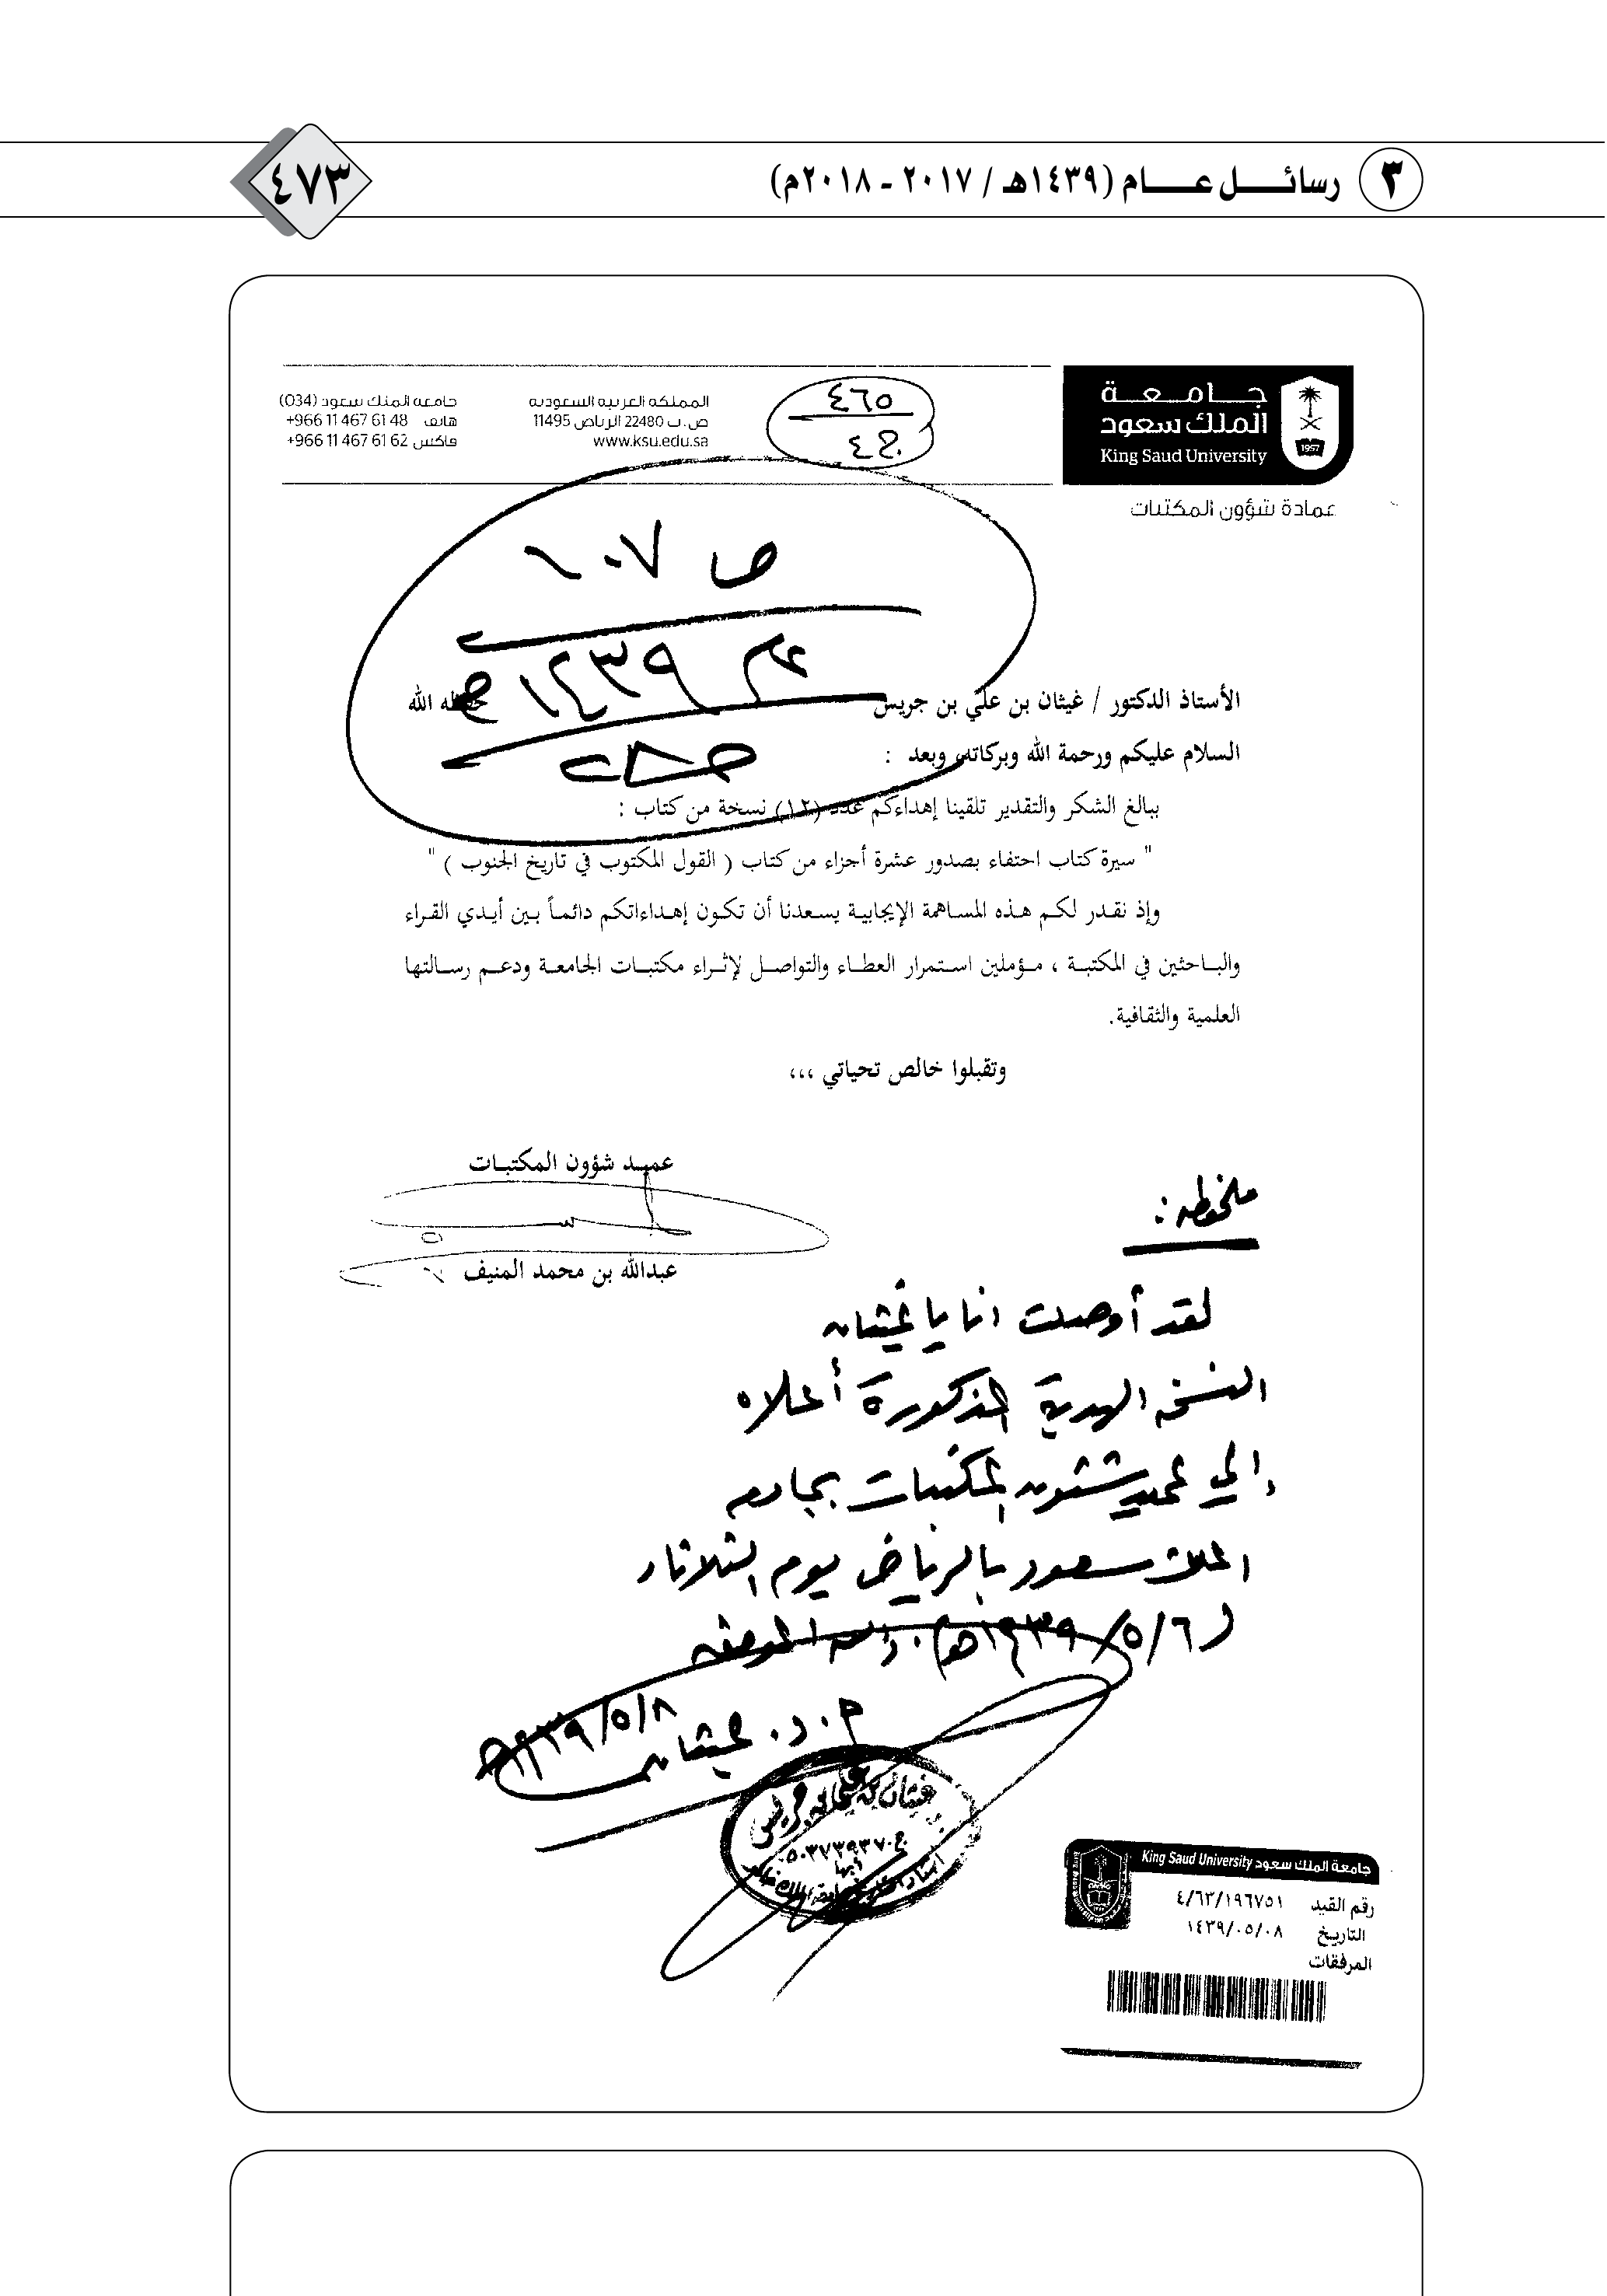 ٣ رسائل عام (١٤٣٩هـ / ٢٠١٧ - ٢٠١٨م)
٤٧٣
جامعة
الملك سعود
King Saud University
1957
عمادة شؤون المكتبات
٤٦٥
ج٤
المملكة العربية السعودية
ص.ب 22480 الرياض 11495
www.ksu.edu.sa
جامعة الملك سعود (034)
هاتف +966 11 467 61 48
فاكس +966 11 467 61 62
ص ١٠٧
عام ١٤٣٩هـ
الأستاذ الدكتور / غيثان بن علي بن جريس حفظه الله
السلام عليكم ورحمة الله وبركاته، وبعد :
ببالغ الشكر والتقدير تلقينا إهداءكم عدد (١٢) نسخة من كتاب :
" سيرة كتاب احتفاء بصدور عشرة أجزاء من كتاب ( القول المكتوب في تاريخ الجنوب ) "
وإذ نقدر لكم هذه المساهمة الإيجابية يسعدنا أن تكون إهداءاتكم دائماً بين أيدي القراء
والباحثين في المكتبة ، مؤملين استمرار العطاء والتواصل لإثراء مكتبات الجامعة ودعم رسالتها
العلمية والثقافية.
وتقبلوا خالص تحياتي ،،،
عميد شؤون المكتبات
عبدالله بن محمد المنيف
ملحوظة :
لقد أوصلت انا يا غيثان
النسخ المهدية المذكورة أعلاه
إلى عميد شئون المكتبات بجامعة
الملك سعود بالرياض يوم الثلاثاء
(٥/٦/١٤٣٩هـ). والله الموفق
أ.د. غيثان
٥/٨/١٤٣٩هـ
غيثان بن علي بن جريس
ج٠٥٠٣٧٣٩٣٧٠
أبها
جامعة الملك سعود King Saud University
رقم القيد ٤/٦٣/١٩٦٧٥١
التاريخ ١٤٣٩/٠٥/٠٨
المرفقات